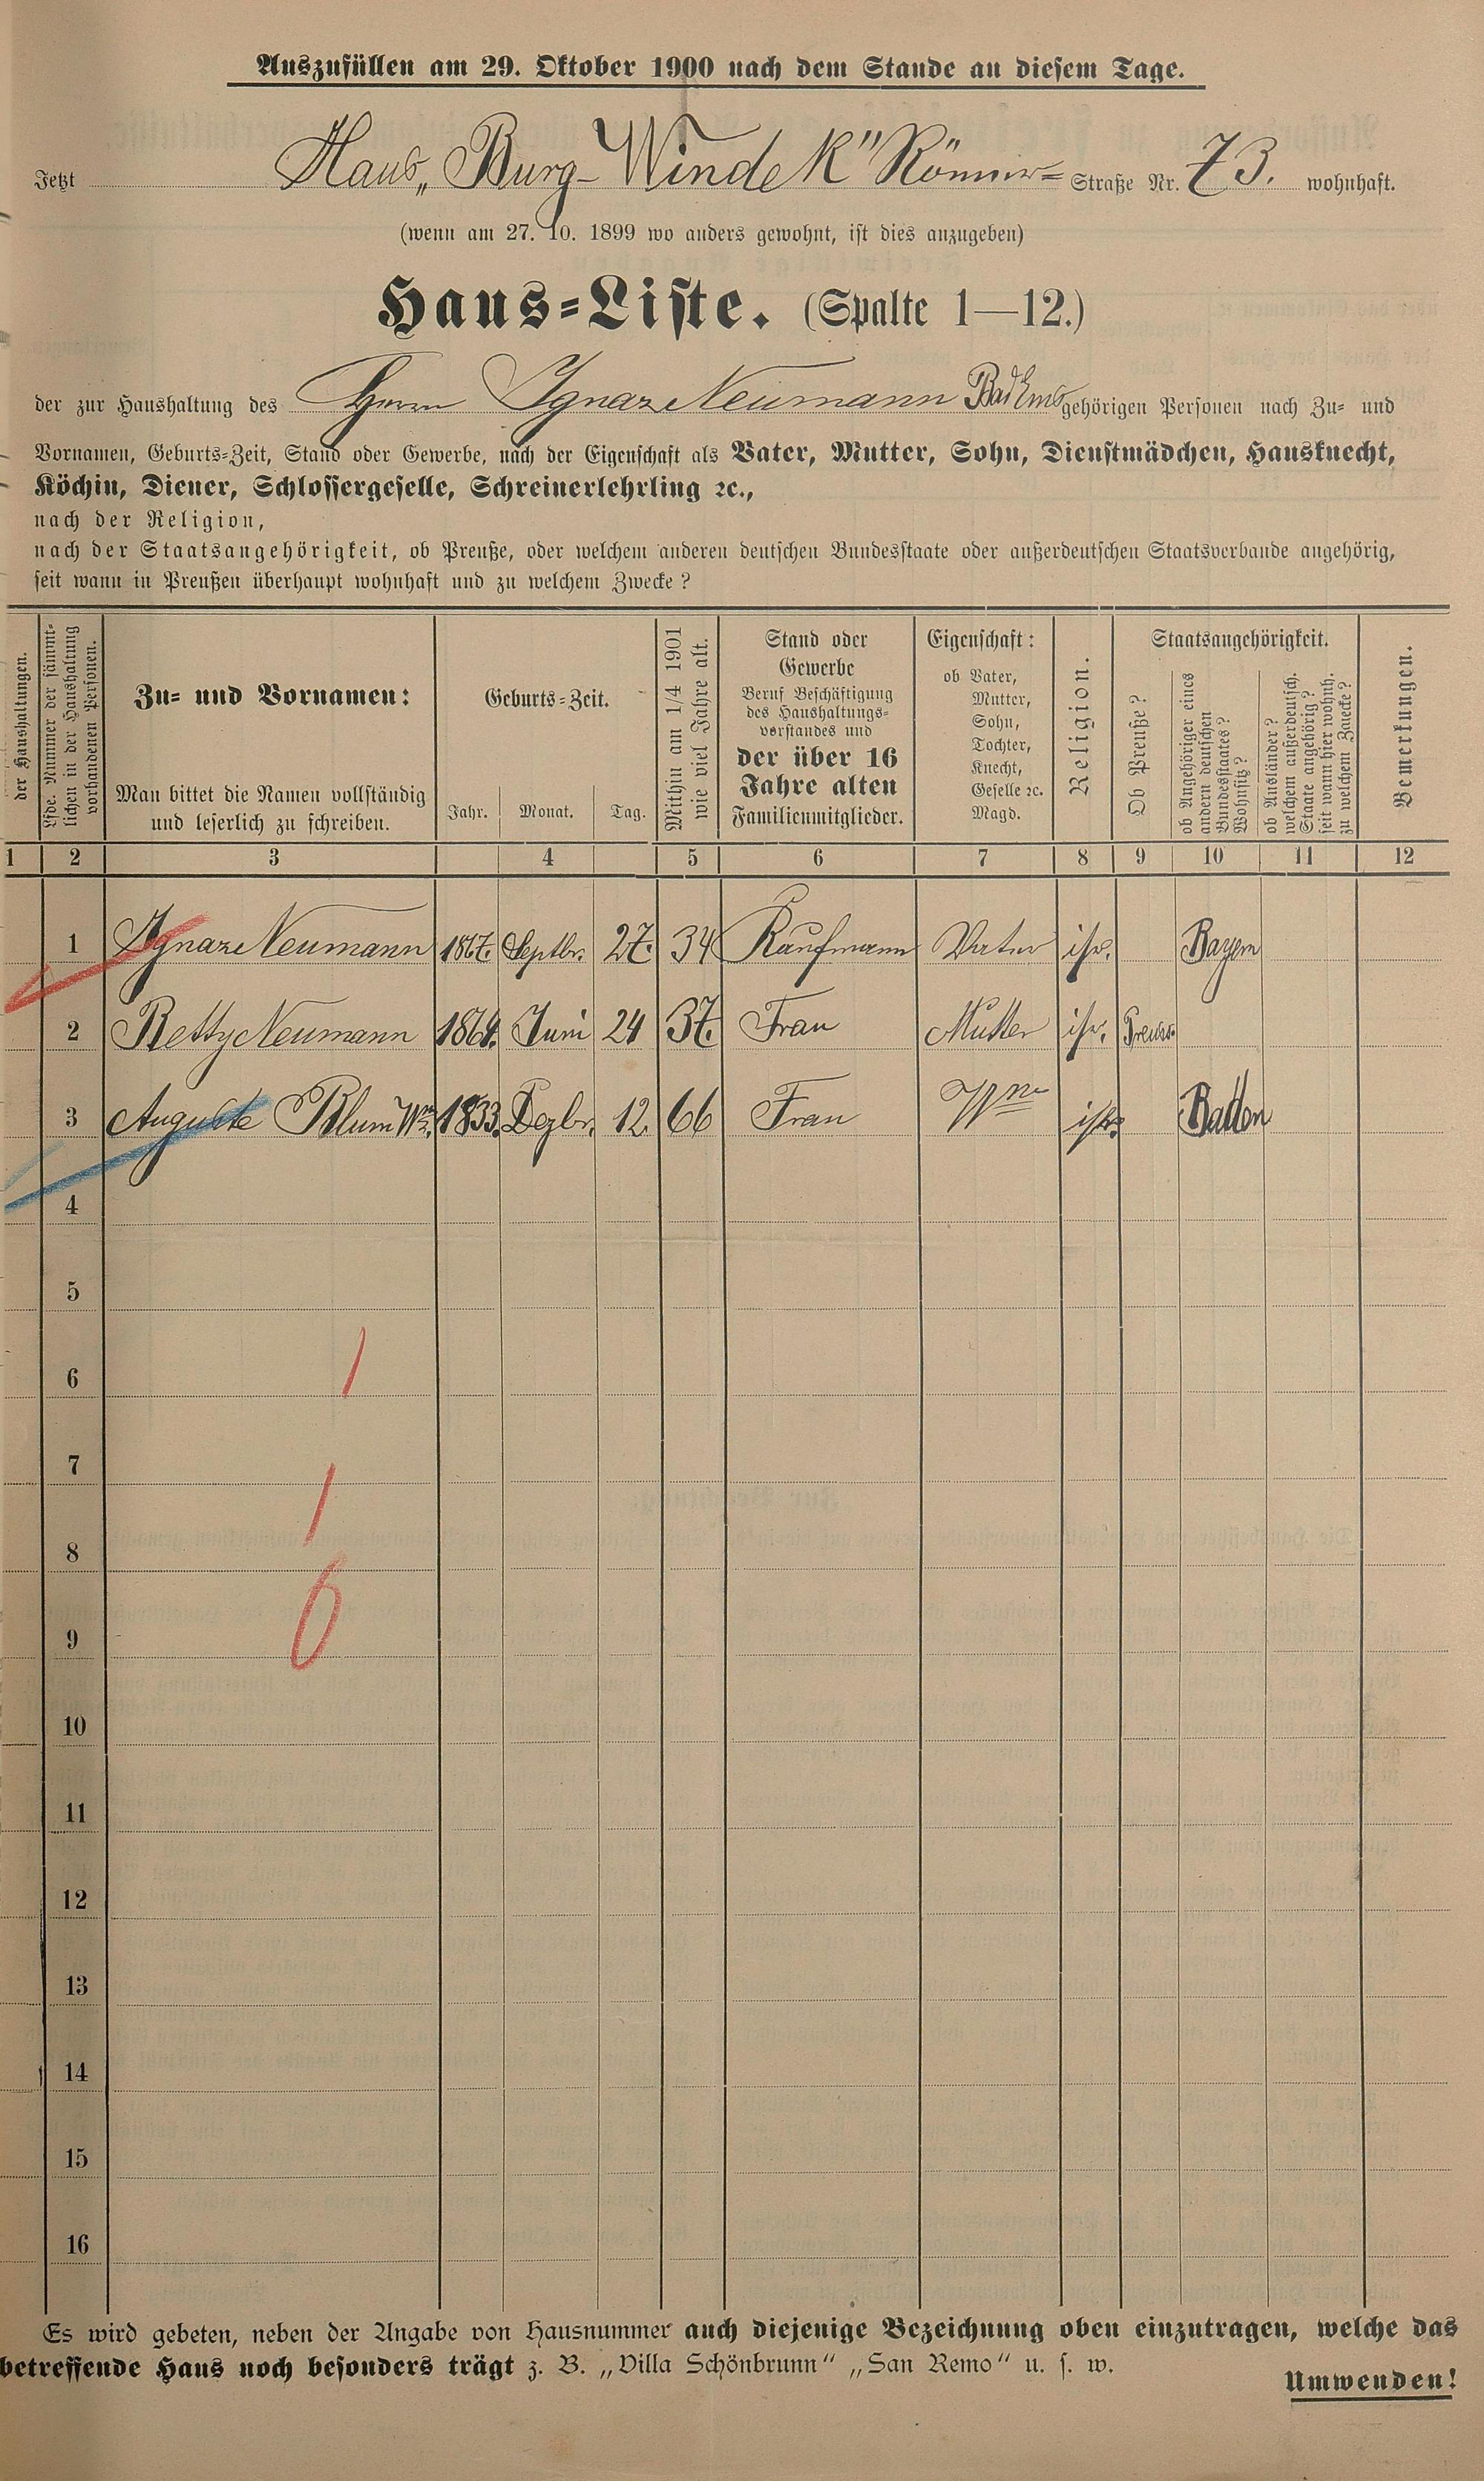 Auszufüllen am 29. Oktober 1900 nach dem Stande an diesem Tage.
Jetzt Haus „Burg-Windek" Römer= Straße Nr. 73. wohnhaft.
(wenn am 27. 10. 1899 wo anders gewohnt, ist dies anzugeben)
Haus=Liste. (Spalte 1—12.)
der zur Haushaltung des Herrn Ignaz Neumann Bad Ems gehörigen Personen nach Zu= und
Vornamen, Geburts=Zeit, Stand oder Gewerbe, nach der Eigenschaft als Vater, Mutter, Sohn, Dienstmädchen, Hausknecht,
Köchin, Diener, Schlossergeselle, Schreinerlehrling ꝛc.,
nach der Religion,
nach der Staatsangehörigkeit, ob Preuße, oder welchem anderen deutschen Bundesstaate oder außerdeutschen Staatsverbande angehörig,
seit wann in Preußen überhaupt wohnhaft und zu welchem Zwecke?
der Haushaltungen.
Lfde. Nummer der sämmt-
lichen in der Haushaltung
vorhandenen Personen.
Zu= und Vornamen:
Man bittet die Namen vollständig
und leserlich zu schreiben.
Geburts=Zeit.
Jahr. Monat. Tag.
Mithin am 1/4 1901
wie viel Jahre alt.
Stand oder
Gewerbe
Beruf Beschäftigung
des Haushaltungs=
vorstandes und
der über 16
Jahre alten
Familienmitglieder.
Eigenschaft:
ob Vater,
Mutter,
Sohn,
Tochter,
Knecht,
Geselle ꝛc.
Magd.
Religion.
Staatsangehörigkeit.
Ob Preuße?
ob Angehöriger eines
andern deutschen
Bundesstaates?
Wohnsitz?
ob Ausländer?
welchem außerdeutsch.
Staate angehörig?
seit wann hier wohnh.
zu welchem Zwecke?
Bemerkungen.
1 2 3 4 5 6 7 8 9 10 11 12
1 Ignaz Neumann 1867. Septbr. 27. 34 Kaufmann Vater isr. Bayern
2 Betty Neumann 1864. Juni 24 37. Frau Mutter isr. Preuss.
3 Auguste Blum Wwe. 1833. Dezbr. 12. 66 Frau Wwe isr. Baden
4
5
6 1
7
1
8
9 0
10
11
12
13
14
15
16
Es wird gebeten, neben der Angabe von Hausnummer auch diejenige Bezeichnung oben einzutragen, welche das
betreffende Haus noch besonders trägt z. B. „Villa Schönbrunn" „San Remo" u. s. w.
Umwenden!